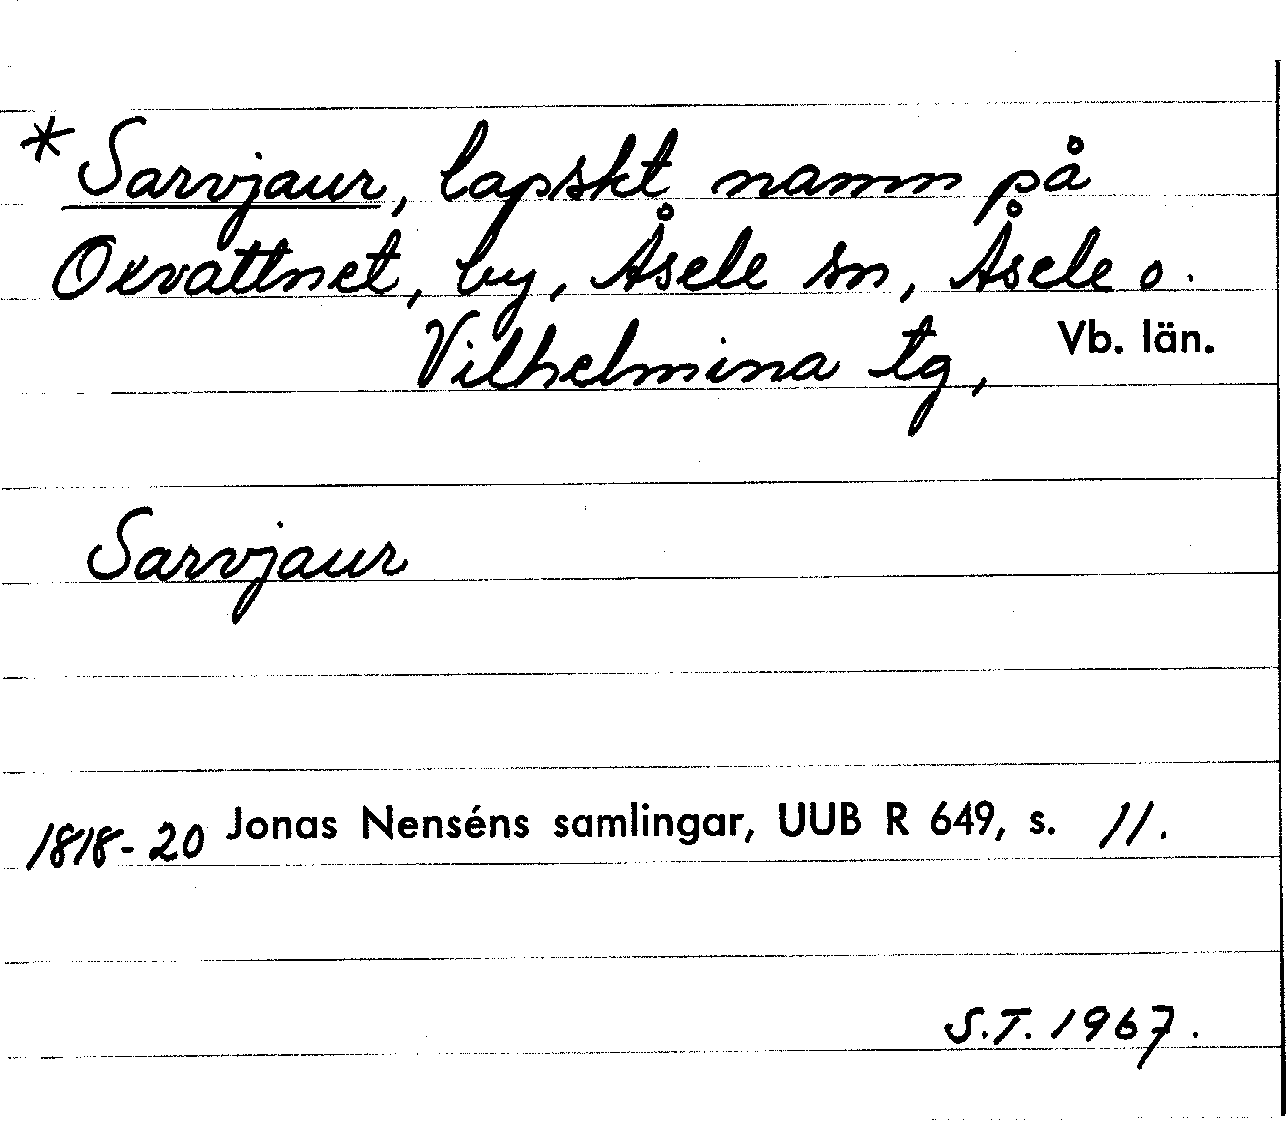 * Sarvjaur, lapskt namn på
Oxvattnet, by, Åsele sn, Åsele o.
Vilhelmina tg, Vb. län.
Sarvjaur
1818-20 Jonas Nenséns samlingar, UUB R 649, s. 11.
S.T. 1967.